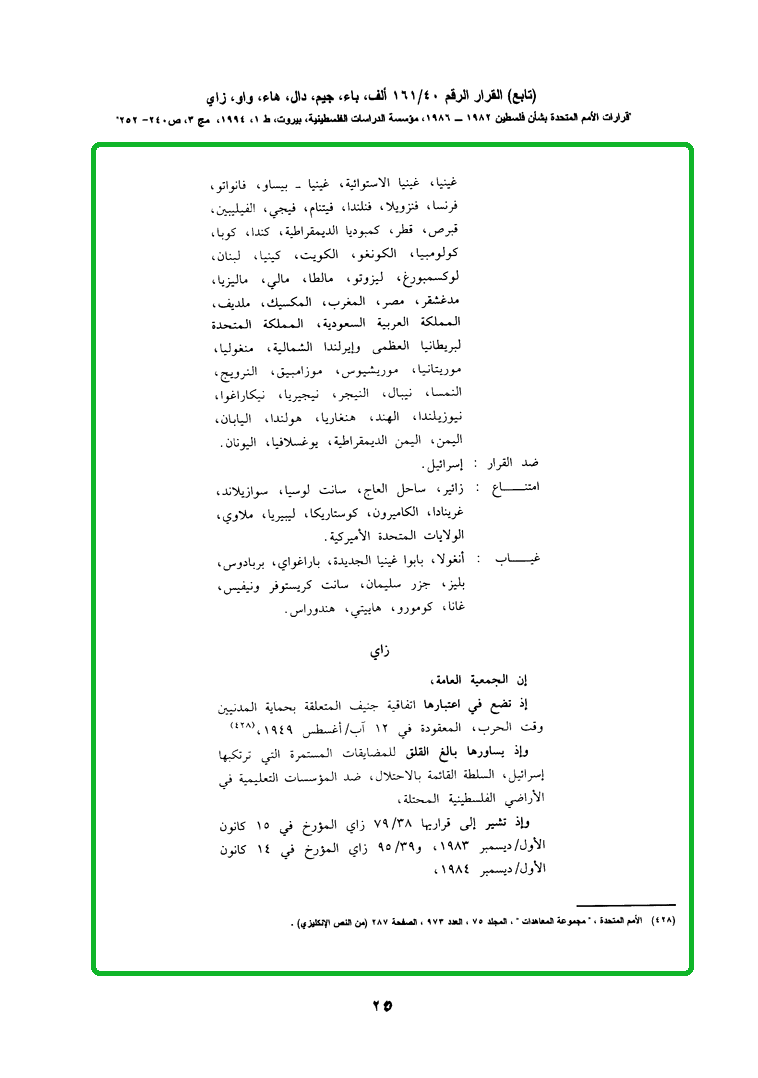 (تابع) القرار الرقم ١٦١/٤٠ ألف، باء، جيم، دال، هاء، واو، زاي
"قرارات الأمم المتحدة بشأن فلسطين ١٩٨٢ ــ ١٩٨٦، مؤسسة الدراسات الفلسطينية، بيروت، ط ١، ١٩٩٤، مج ٣، ص٢٤٠- ٢٥٢"
غينيا، غينيا الاستوائية، غينيا ـ بيساو، فانواتو،
فرنسا، فنزويلا، فنلندا، فيتنام، فيجي، الفيليبين،
قبرص، قطر، كمبوديا الديمقراطية، كندا، كوبا،
كولومبيا، الكونغو، الكويت، كينيا، لبنان،
لوكسمبورغ، ليزوتو، مالطا، مالي، ماليزيا،
مدغشقر، مصر، المغرب، المكسيك، ملديف،
المملكة العربية السعودية، المملكة المتحدة
لبريطانيا العظمى وإيرلندا الشمالية، منغوليا،
موريتانيا، موريشيوس، موزامبيق، النرويج،
النمسا، نيبال، النيجر، نيجيريا، نيكاراغوا،
نيوزيلندا، الهند، هنغاريا، هولندا، اليابان،
اليمن، اليمن الديمقراطية، يوغسلافيا، اليونان.
ضد القرار : إسرائيل.
امتنـــــاع : زائير، ساحل العاج، سانت لوسيا، سوازيلاند،
غرينادا، الكاميرون، كوستاريكا، ليبيريا، ملاوي،
الولايات المتحدة الأميركية.
غيـــــاب : أنغولا، بابوا غينيا الجديدة، باراغواي، بربادوس،
بليز، جزر سليمان، سانت كريستوفر ونيفيس،
غانا، كومورو، هاييتي، هندوراس.
زاي
إن الجمعية العامة،
إذ تضع في اعتبارها اتفاقية جنيف المتعلقة بحماية المدنيين
وقت الحرب، المعقودة في ١٢ آب/أغسطس ١٩٤٩،(٤٢٨)
وإذ يساورها بالغ القلق للمضايقات المستمرة التي ترتكبها
إسرائيل، السلطة القائمة بالاحتلال، ضد المؤسسات التعليمية في
الأراضي الفلسطينية المحتلة،
وإذ تشير إلى قراريها ٧٩/٣٨ زاي المؤرخ في ١٥ كانون
الأول/ديسمبر ١٩٨٣، و٩٥/٣٩ زاي المؤرخ في ١٤ كانون
الأول/ديسمبر ١٩٨٤،
(٤٢٨) الأمم المتحدة ، " مجموعة المعاهدات " ، المجلد ٧٥ ، العدد ٩٧٣ ، الصفحة ٢٨٧ (من النص الإنكليزي) .
٢٥